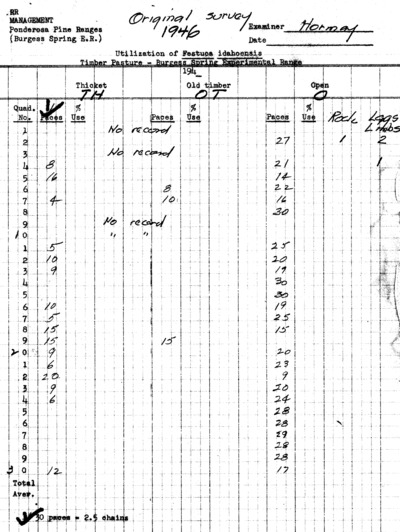 RR
MANAGEMENT
Ponderosa Pine Ranges
(Burgess Spring E.R.)
Original survey
1946
Examiner Hormay
Date
Utilization of Festuca idahoensis
Timber Pasture - Burgess Spring Experimental Range
194_
Thicket Old timber Open
TH OT O
Quad. No. Paces % Use Paces % Use Paces % Use Rock Logs Limbs
1 No record
2 27 1 2
3 No record
4 8 21 1
5 16 14
6 8 22
7 4 10 16
8 30
9 No record
10 " "
1 5 25
2 10 20
3 9 19
4 30
5 30
6 10 19
7 5 25
8 15 15
9 15 15
20 9 20
1 6 23
2 20 9
3 9 20
4 6 24
5 28
6 28
7 29
8 28
9 28
30 12 17
Total
Aver.
30 paces = 2.5 chains